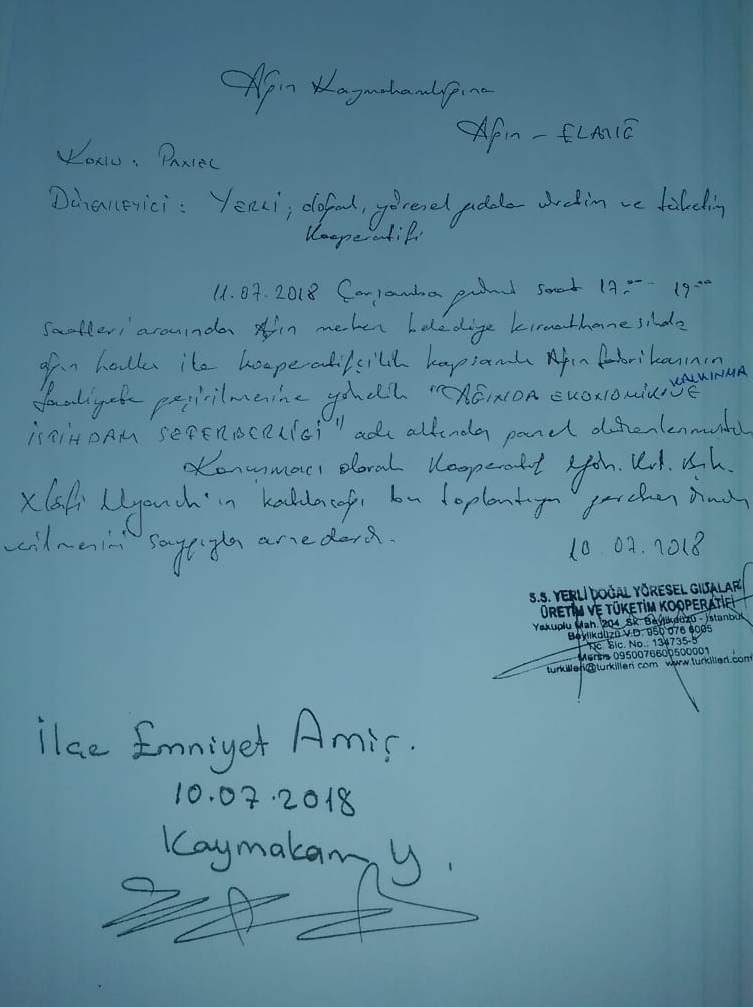 Ağın Kaymakamlığına
Ağın - ELAZIĞ
KONU : PANEL
DÜZENLEYİCİ : YERLİ, doğal, yöresel gıdalar üretim ve tüketim
Kooperatifi
11.07.2018 Çarşamba günü saat 17.00 - 19.00
saatleri arasında Ağın merkez belediye kıraathanesinde
ağın halkı ile kooperatifçilik kapsamlı Ağın fabrikasının
faaliyete geçirilmesine yönelik "AĞINDA EKONOMİK VE KALKINMA
İSTİHDAM SEFERBERLİĞİ" adı altında panel düzenlenmiştir
Konuşmacı olarak Kooperatif Yön. Krl. Bşk.
katılacağı bu toplantıya gereken iznin
verilmesini saygıyla arzederiz.
10.07.2018
S.S. YERLİ DOĞAL YÖRESEL GIDALAR
ÜRETİM VE TÜKETİM KOOPERATİFİ
Yakuplu Mah. 204. Sk. Beylikdüzü - İstanbul
Beylikdüzü V.D. 950 076 6005
Tic. Sic. No.: 134735-5
Mersis 0950076600500001
turkilleri@turkilleri.com www.turkilleri.com
İlçe Emniyet Amir.
10.07.2018
Kaymakam Y.